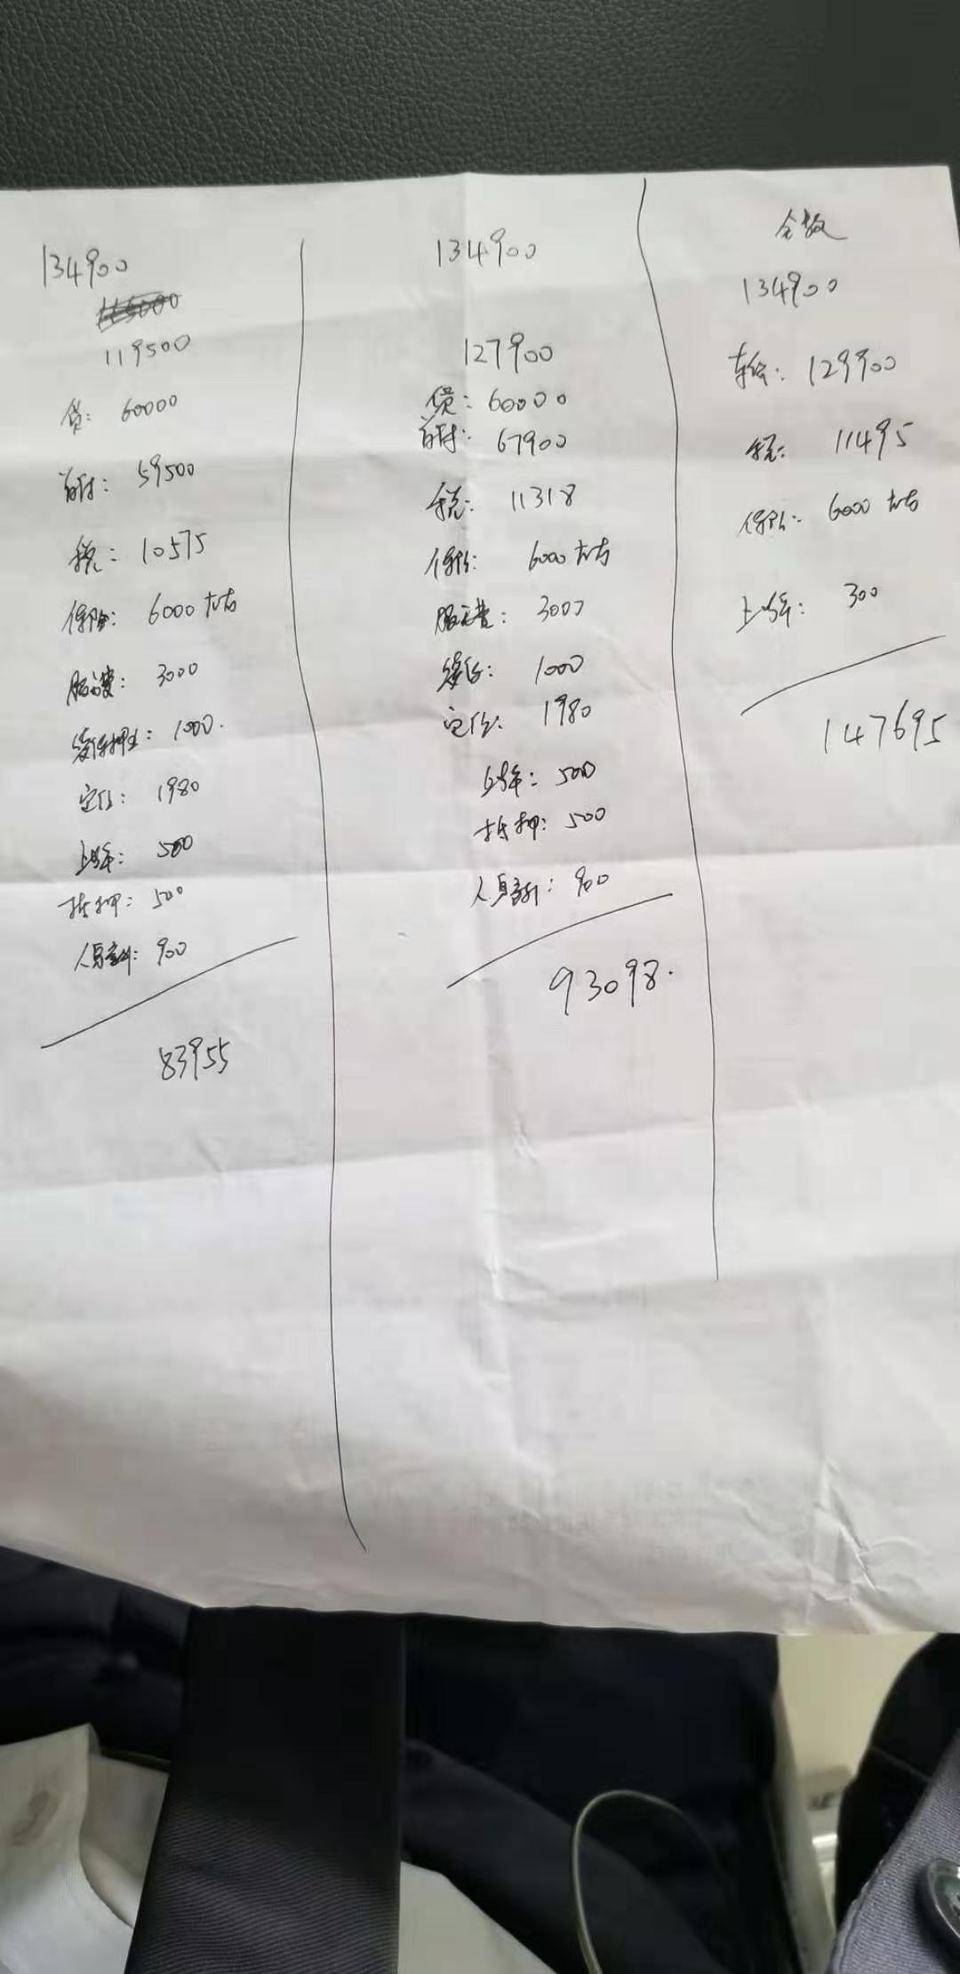 134900
119500
贷: 60000
首付: 59500
税: 10575
保险: 6000左右
服务费: 3000
续保押金: 1000.
定位: 1980
上牌: 500
抵押: 500
人身意外: 900
83955
134900
127900
贷: 60000
首付: 67900
税: 11318
保险: 6000左右
服务费: 3000
续保: 1000
定位: 1980
上牌: 500
抵押: 500
人身意外: 900
93098.
全款
134900
车价: 129900
税: 11495
保险: 6000左右
上牌: 300
147695